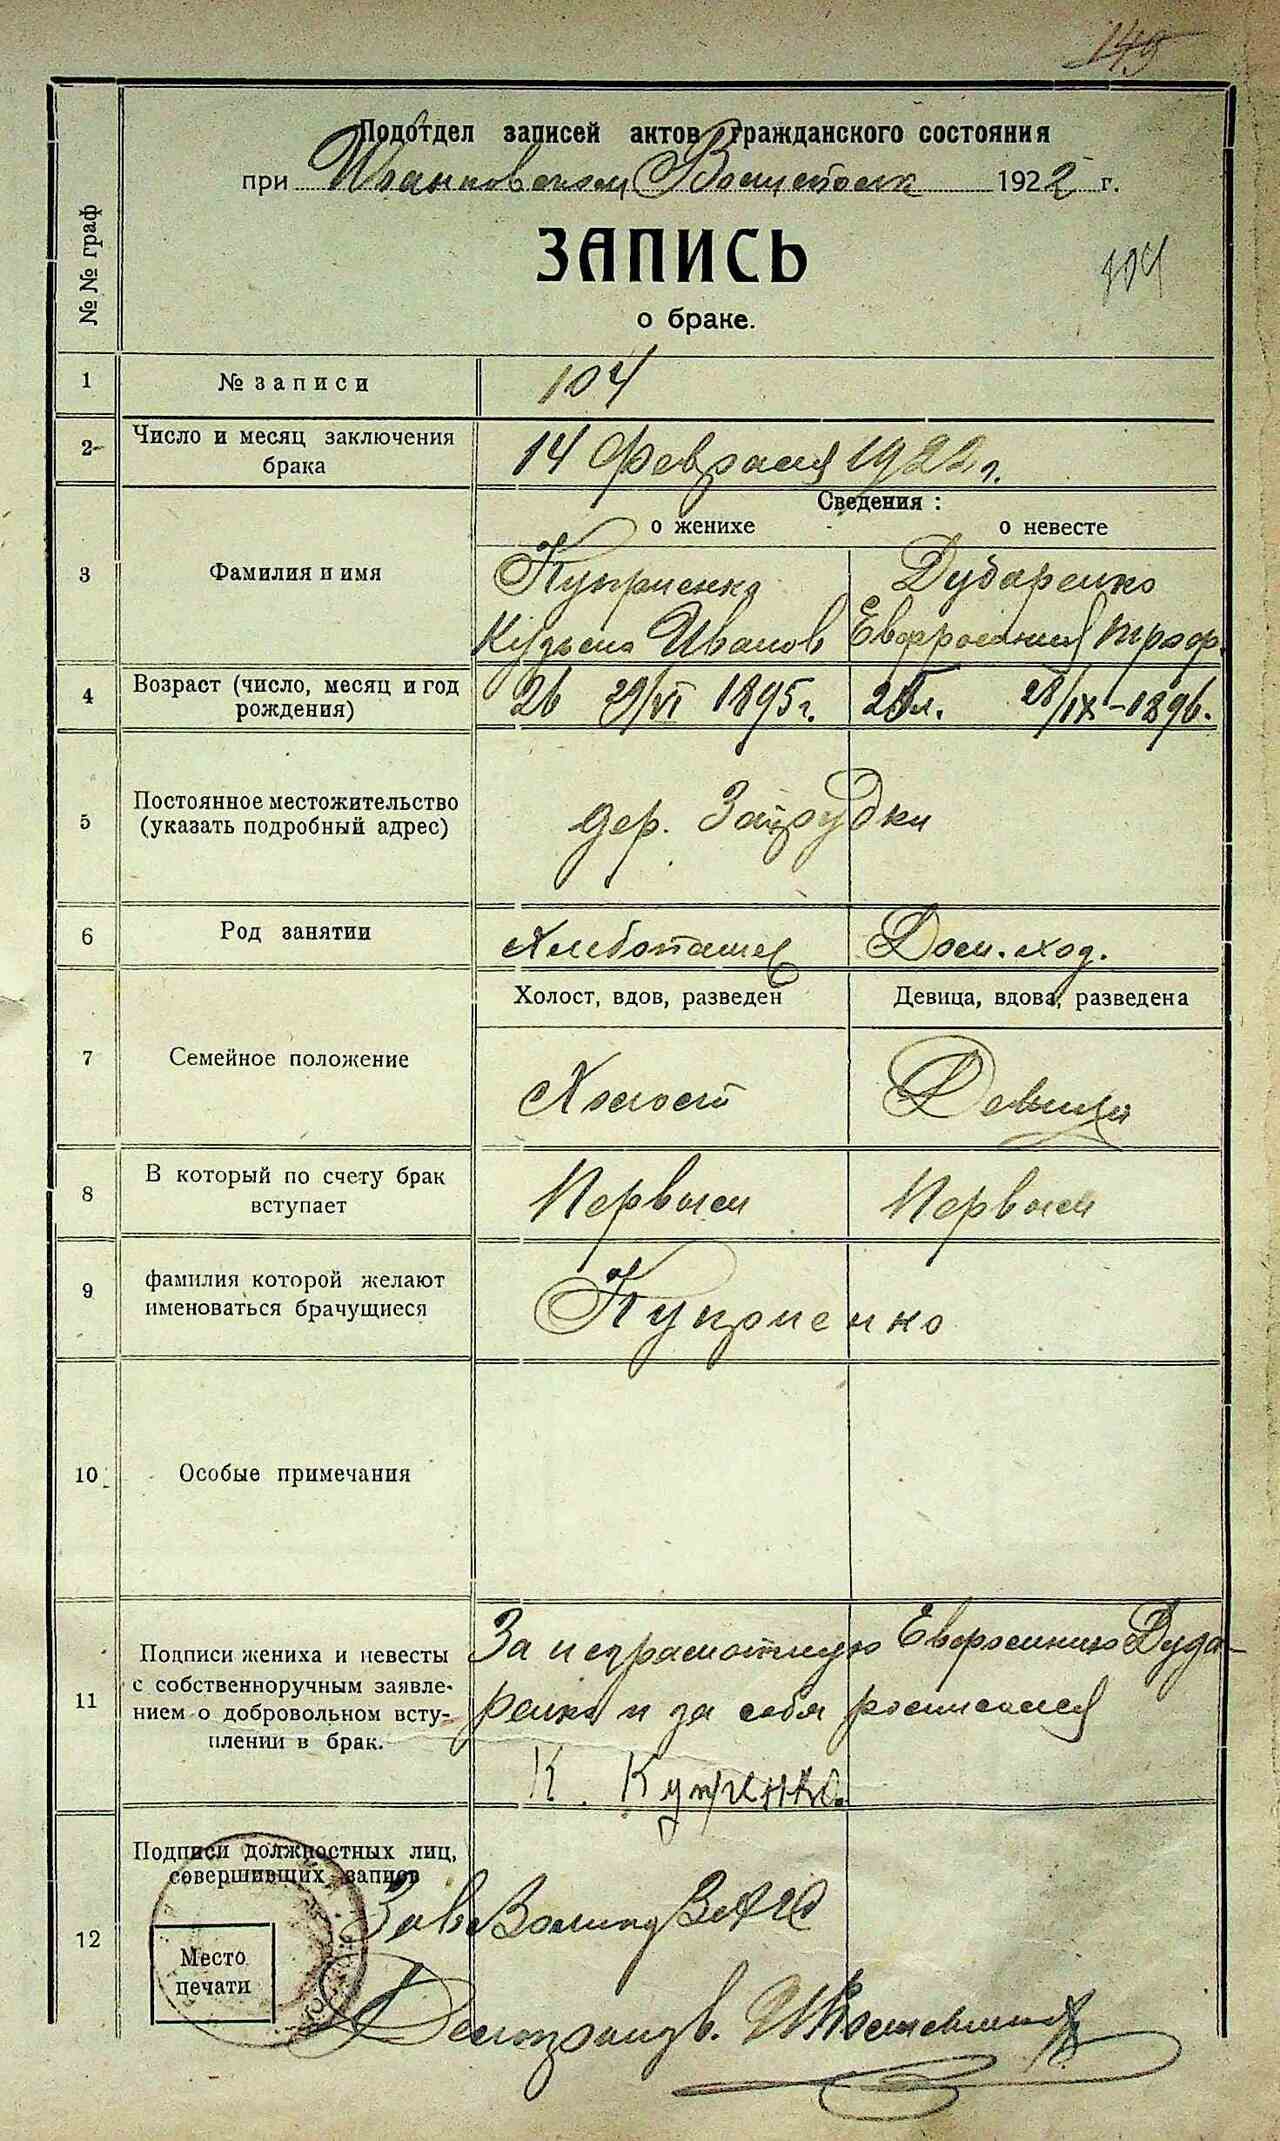 149
Подотдел записей актов гражданского состояния
при Ивановском Волисполк 1922 г.
№№ граф
ЗАПИСЬ
104
о браке.
1 № записи 104
2 Число и месяц заключения брака 14 Февраля 1922 г.
Сведения:
о женихе о невесте
3 Фамилия и имя Куприенко Дударенко
Кузьма Иванов Евфросиния Троф.
4 Возраст (число, месяц и год рождения) 26 29/VI 1895 г. 25 л. 28/IX-1896.
5 Постоянное местожительство (указать подробный адрес) дер. Запрудки
6 Род занятии Хлебопашец Дом. хоз.
Холост, вдов, разведен Девица, вдова, разведена
7 Семейное положение Холост Девица
8 В который по счету брак вступает Первым Первым
9 фамилия которой желают именоваться брачущиеся Куприенко
10 Особые примечания
11 Подписи жениха и невесты с собственноручным заявлением о добровольном вступлении в брак.
За неграмотную Евфросинию Дуда-
ренко и за себя росписался
К. Куприенко.
12 Подписи должностных лиц, совершивших запись
Место печати
Зав
Делопроизв.